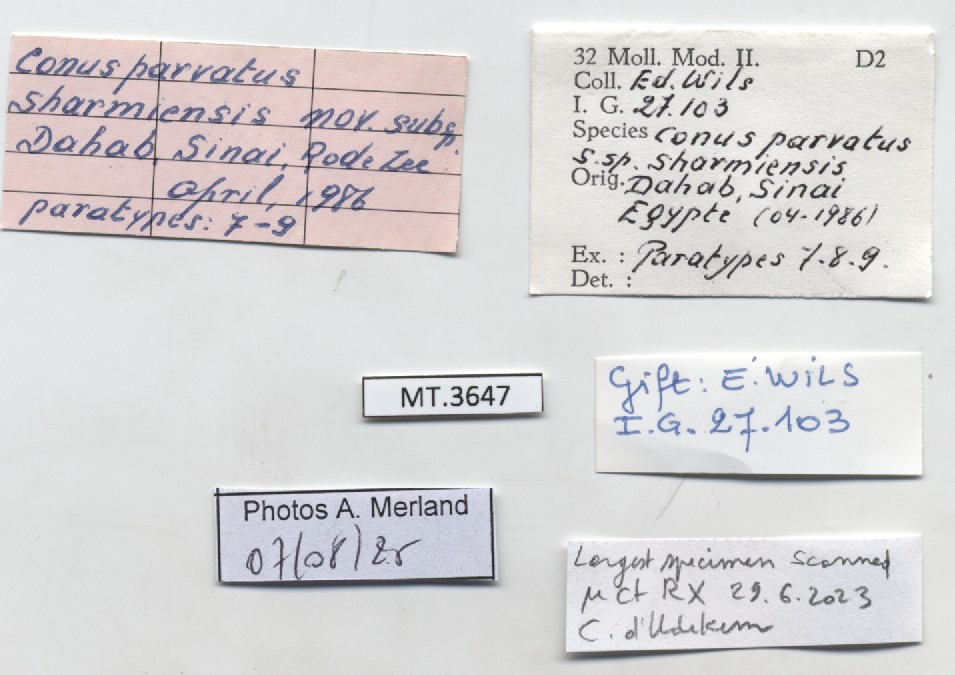 Conus parvatus
sharmiensis nov. subsp.
Dahab, Sinai, Rode Zee
April, 1986
paratypes: 7-9
32 Moll. Mod. II. D2
Coll. Ed. Wils
I. G. 27.103
Species Conus parvatus
s.sp. sharmiensis
Orig. Dahab, Sinai
Egypte (04-1986)
Ex. : Paratypes 7.8.9.
Det. :
MT.3647
Gift: E. WILS
I.G. 27.103
Photos A. Merland
07/08/25
Largest specimen scanned
µct RX 29.6.2023
C. d'Udekem